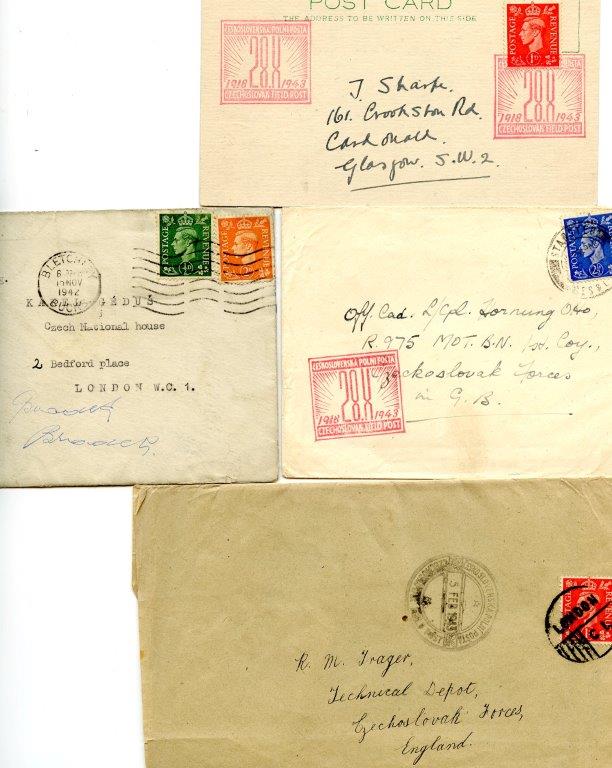 POST CARD
THE ADDRESS TO BE WRITTEN ON THIS SIDE
POSTAGE REVENUE
1D
ČESKOSLOVENSKÁ POLNÍ POSTA
28.X
1918 1943
CZECHOSLOVAK FIELD POST
28.X
1918 1943
CZECHOSLOVAK FIELD POST
J Sharp.
161. Crookston Rd.
Cardonald.
Glasgow. S.W.2.
BLETCHLEY
15 NOV
1942
BUCKS
POSTAGE REVENUE
POSTAGE REVENUE
KAREL GÉDUŠ
Czech National house
2 Bedford place
LONDON W.C. 1.
POSTAGE REVENUE
2½D
Off. Cad. L/Cpl. Hornung Otto,
R 975 MOT. B.N. 1st. Coy.,
Czechoslovak Forces
in G.B.
ČESKOSLOVENSKÁ POLNÍ POSTA
28.X
1918 1943
CZECHOSLOVAK FIELD POST
POLNÍ POSTA
5 FEB 1943
POSTAGE REVENUE
LONDON
R. M. Trager,
Technical Depot,
Czechoslovak Forces,
England.